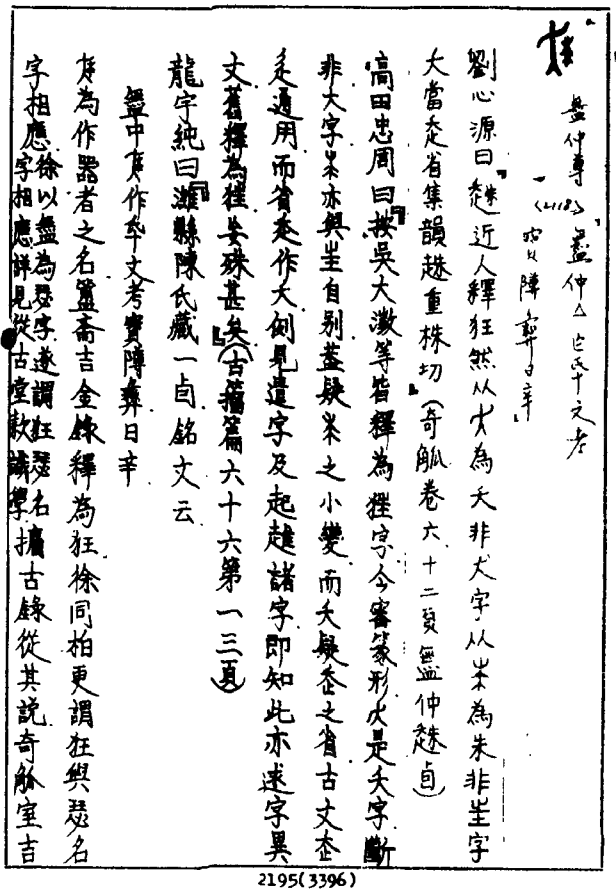 盠仲尊 一〈4118〉 盠仲△乍氒文考
寶障彝日辛』
劉心源曰『趎近人釋狂然从犬為夭非犬字从𡴎為朱非㞷字
大當走省集韻趎重株切(奇觚卷六十二頁盠仲趎卣)
高田忠周曰『按吳大澂等皆釋為狴字今審篆形犬是夭字斷
非犬字𡴎亦與㞷自別蓋疑𡴎之小變而夭疑走之省古文走
辵通用而省走作夭例見遣字及起趞諸字即知此亦逑字異
文舊釋為狴妄殊甚矣』(古籀篇六十六第一三頁)
龍宇純曰『濰縣陳氏藏一卣銘文云
盠中作氒文考寶障彝日辛
為作器者之名簠齋吉金錄釋為狂徐同柏更謂狂與瑟名
字相應徐以盠為瑟字遂謂狂瑟名字相應詳見從古堂款識學攈古錄從其說奇觚室吉
2195(3396)